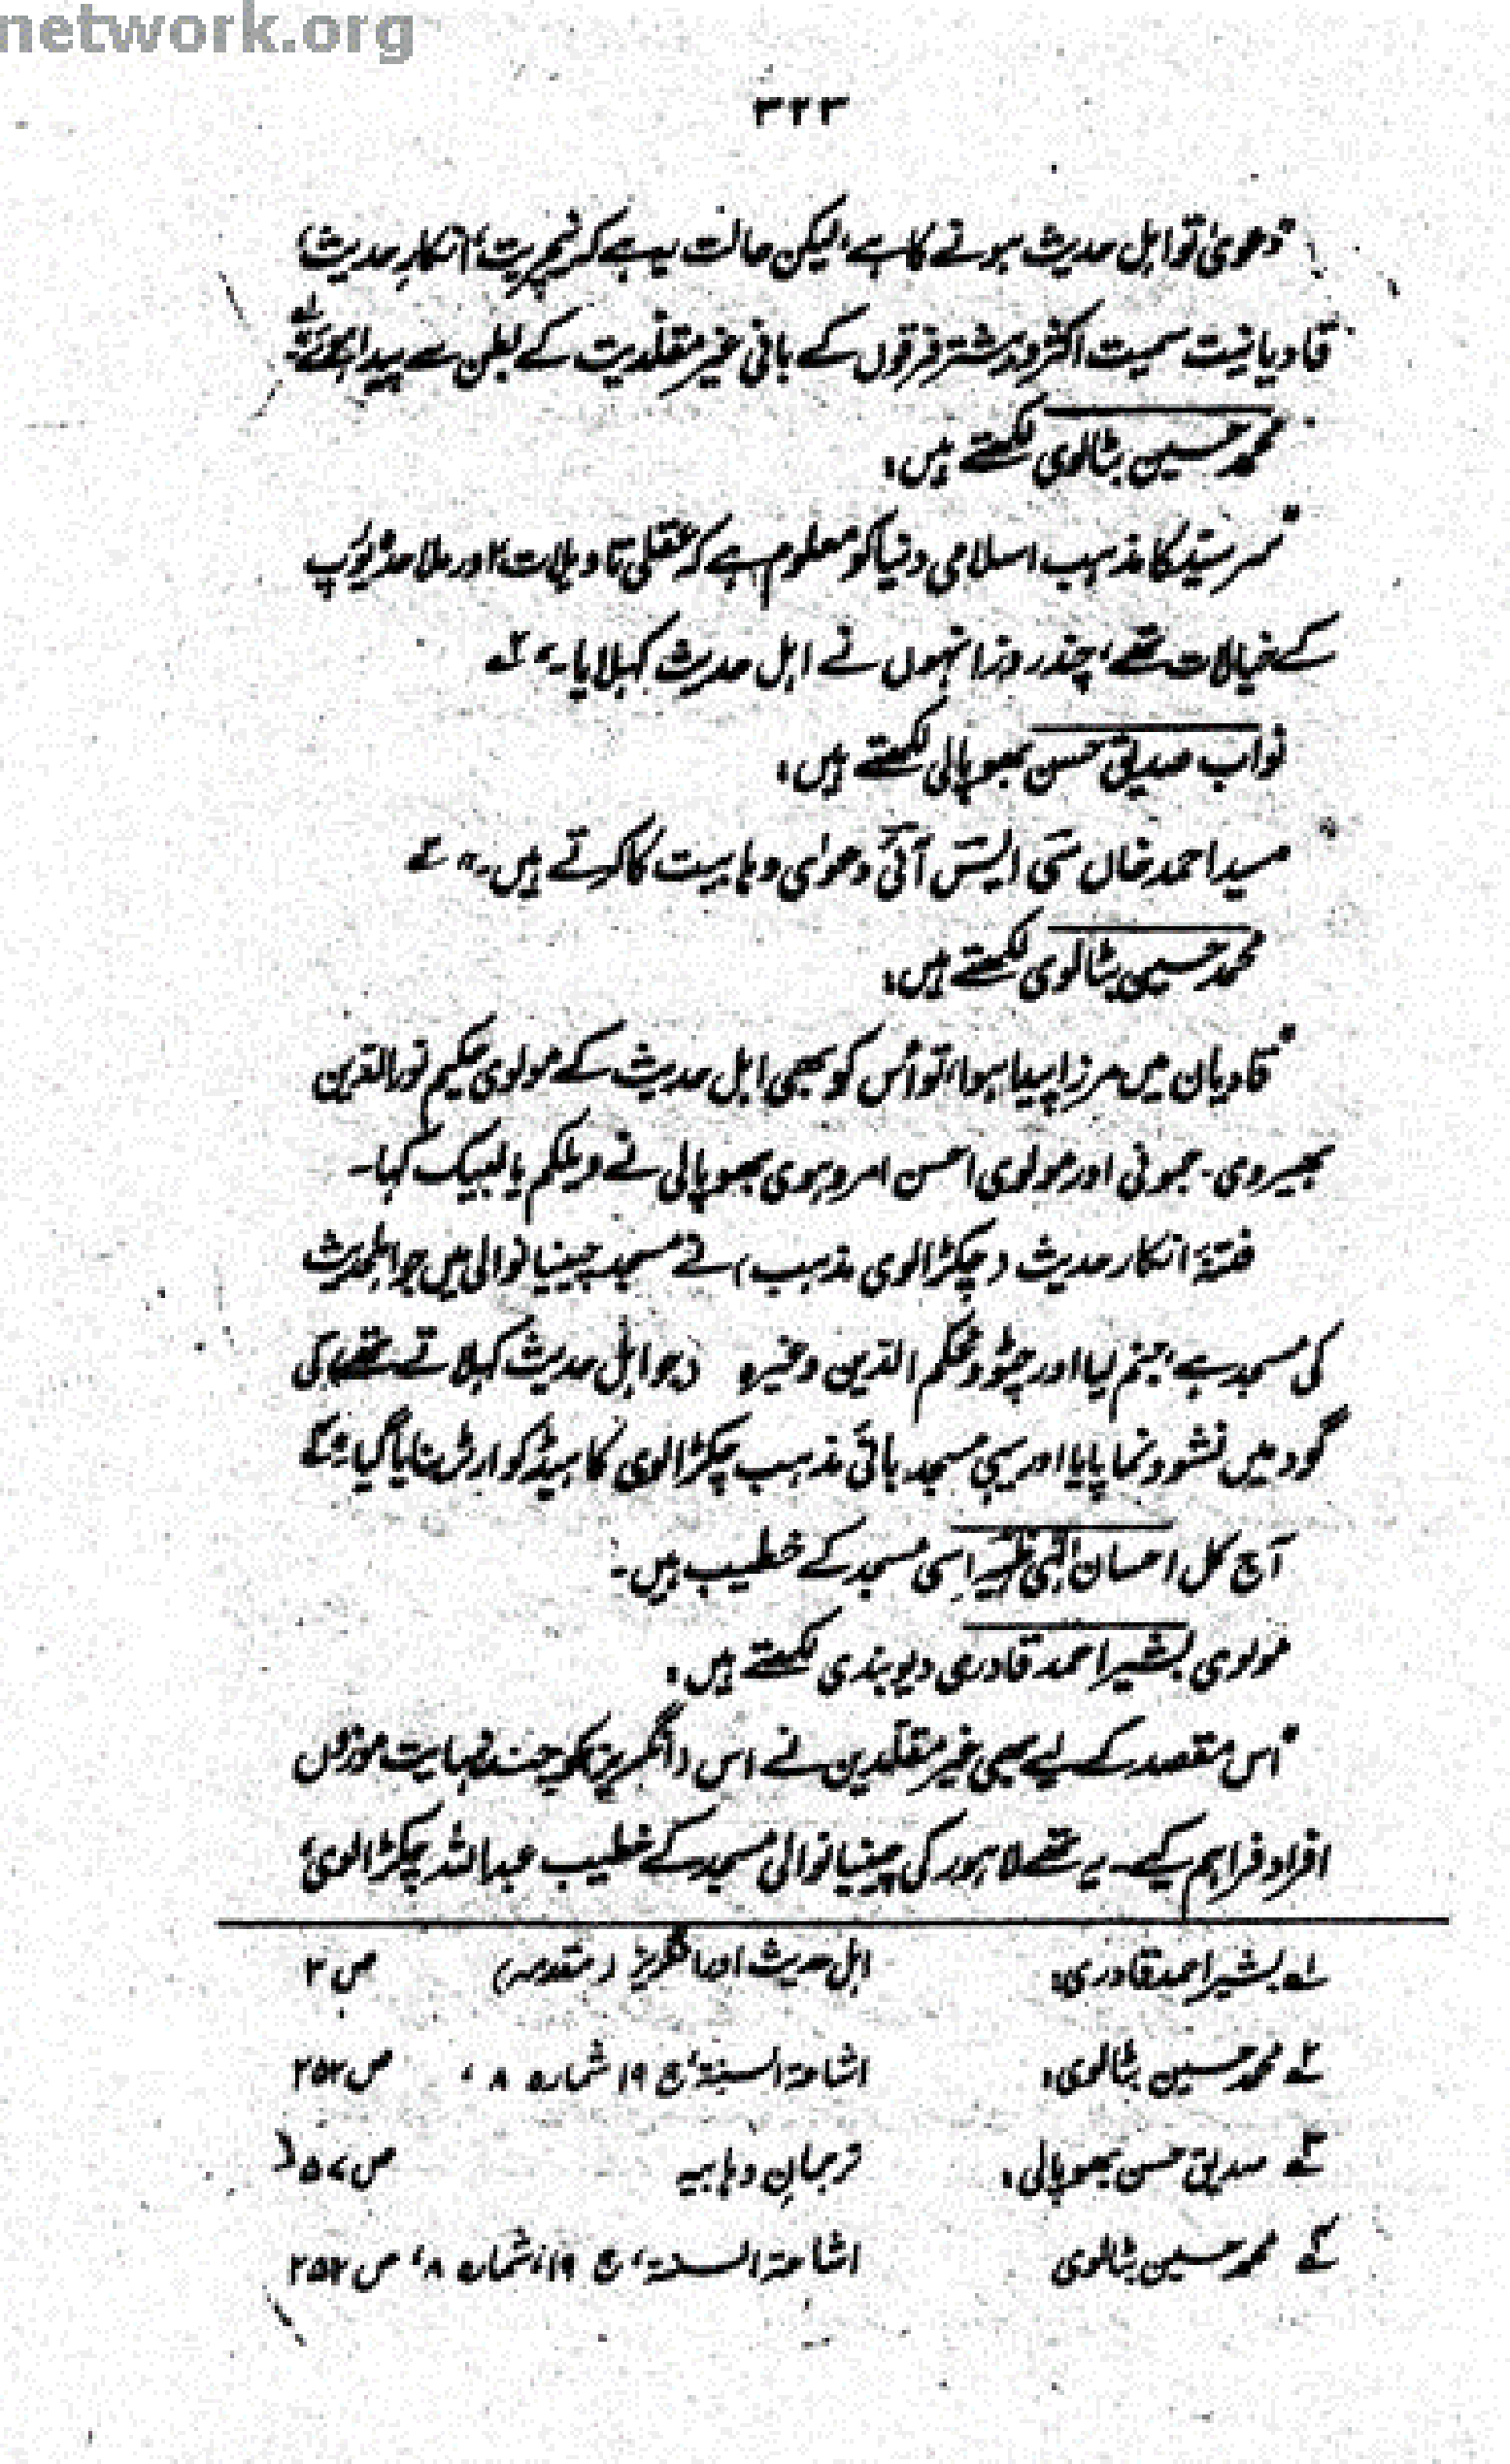 network.org
۳۲۳
"دعویٰ تو اہل حدیث ہونے کا ہے، لیکن حالت یہ ہے کہ نیچریت، انکارِ حدیث،
قادیانیت سمیت اکثر و بیشتر فرقوں کے بانی غیر مقلدیت کے بطن سے پیدا ہوئے" لے
محمد حسین بٹالوی لکھتے ہیں:
"سر سیّد کا مذہب اسلامی دنیا کو معلوم ہے کہ عقلی تاویلات اور ملاحدۂ یورپ
کے خیالات تھے، چند روز انہوں نے اہل حدیث کہلایا۔" ۲ے
نواب صدیق حسن بھوپالی لکھتے ہیں:
"سید احمد خاں سی ایس آئی دعوٰی وہابیت کا کرتے ہیں۔" ۳ے
محمد حسین بٹالوی لکھتے ہیں:
"قادیان میں مرزا پیدا ہوا، تو اُس کو بھی اہل حدیث کے مولوی حکیم نور الدین
بھیروی۔ جمونی اور مولوی احسن امروہوی بھوپالی نے ویلکم یا لبیک کہا۔
فتنۂ انکار حدیث (چکڑالوی مذہب) نے مسجد چینیانوالی میں جو اہلحدیث
کی مسجد ہے، جنم لیا اور چٹو و محکم الدین وغیرہ (جو اہل حدیث کہلاتے تھے) کی
گود میں نشو و نما پایا اور یہی مسجد بانیٔ مذہب چکڑالوی کا ہیڈ کوارٹر بنایا گیا۔" ۴ے
آج کل احسان الٰہی ظہیر اسی مسجد کے خطیب ہیں۔
مولوی بشیر احمد قادری دیوبندی لکھتے ہیں:
"اس مقصد کے لیے بھی غیر مقلدین نے اس (انگریز) کو چند نہایت موزوں
افراد فراہم کیے۔ یہ تھے لاہور کی چینیانوالی مسجد کے خطیب عبداللہ چکڑالوی،
۱ے بشیر احمد قادری: اہل حدیث اور انگریز (مقدمہ) ص ۲
۲ے محمد حسین بٹالوی: اشاعۃ السنۃ، ج ۱۹ شمارہ ۸، ص ۲۵۲
۳ے صدیق حسن بھوپالی: ترجمان وہابیہ ص ۵۷
۴ے محمد حسین بٹالوی اشاعۃ السنۃ، ج ۱۹، شمارہ ۸، ص ۲۵۲